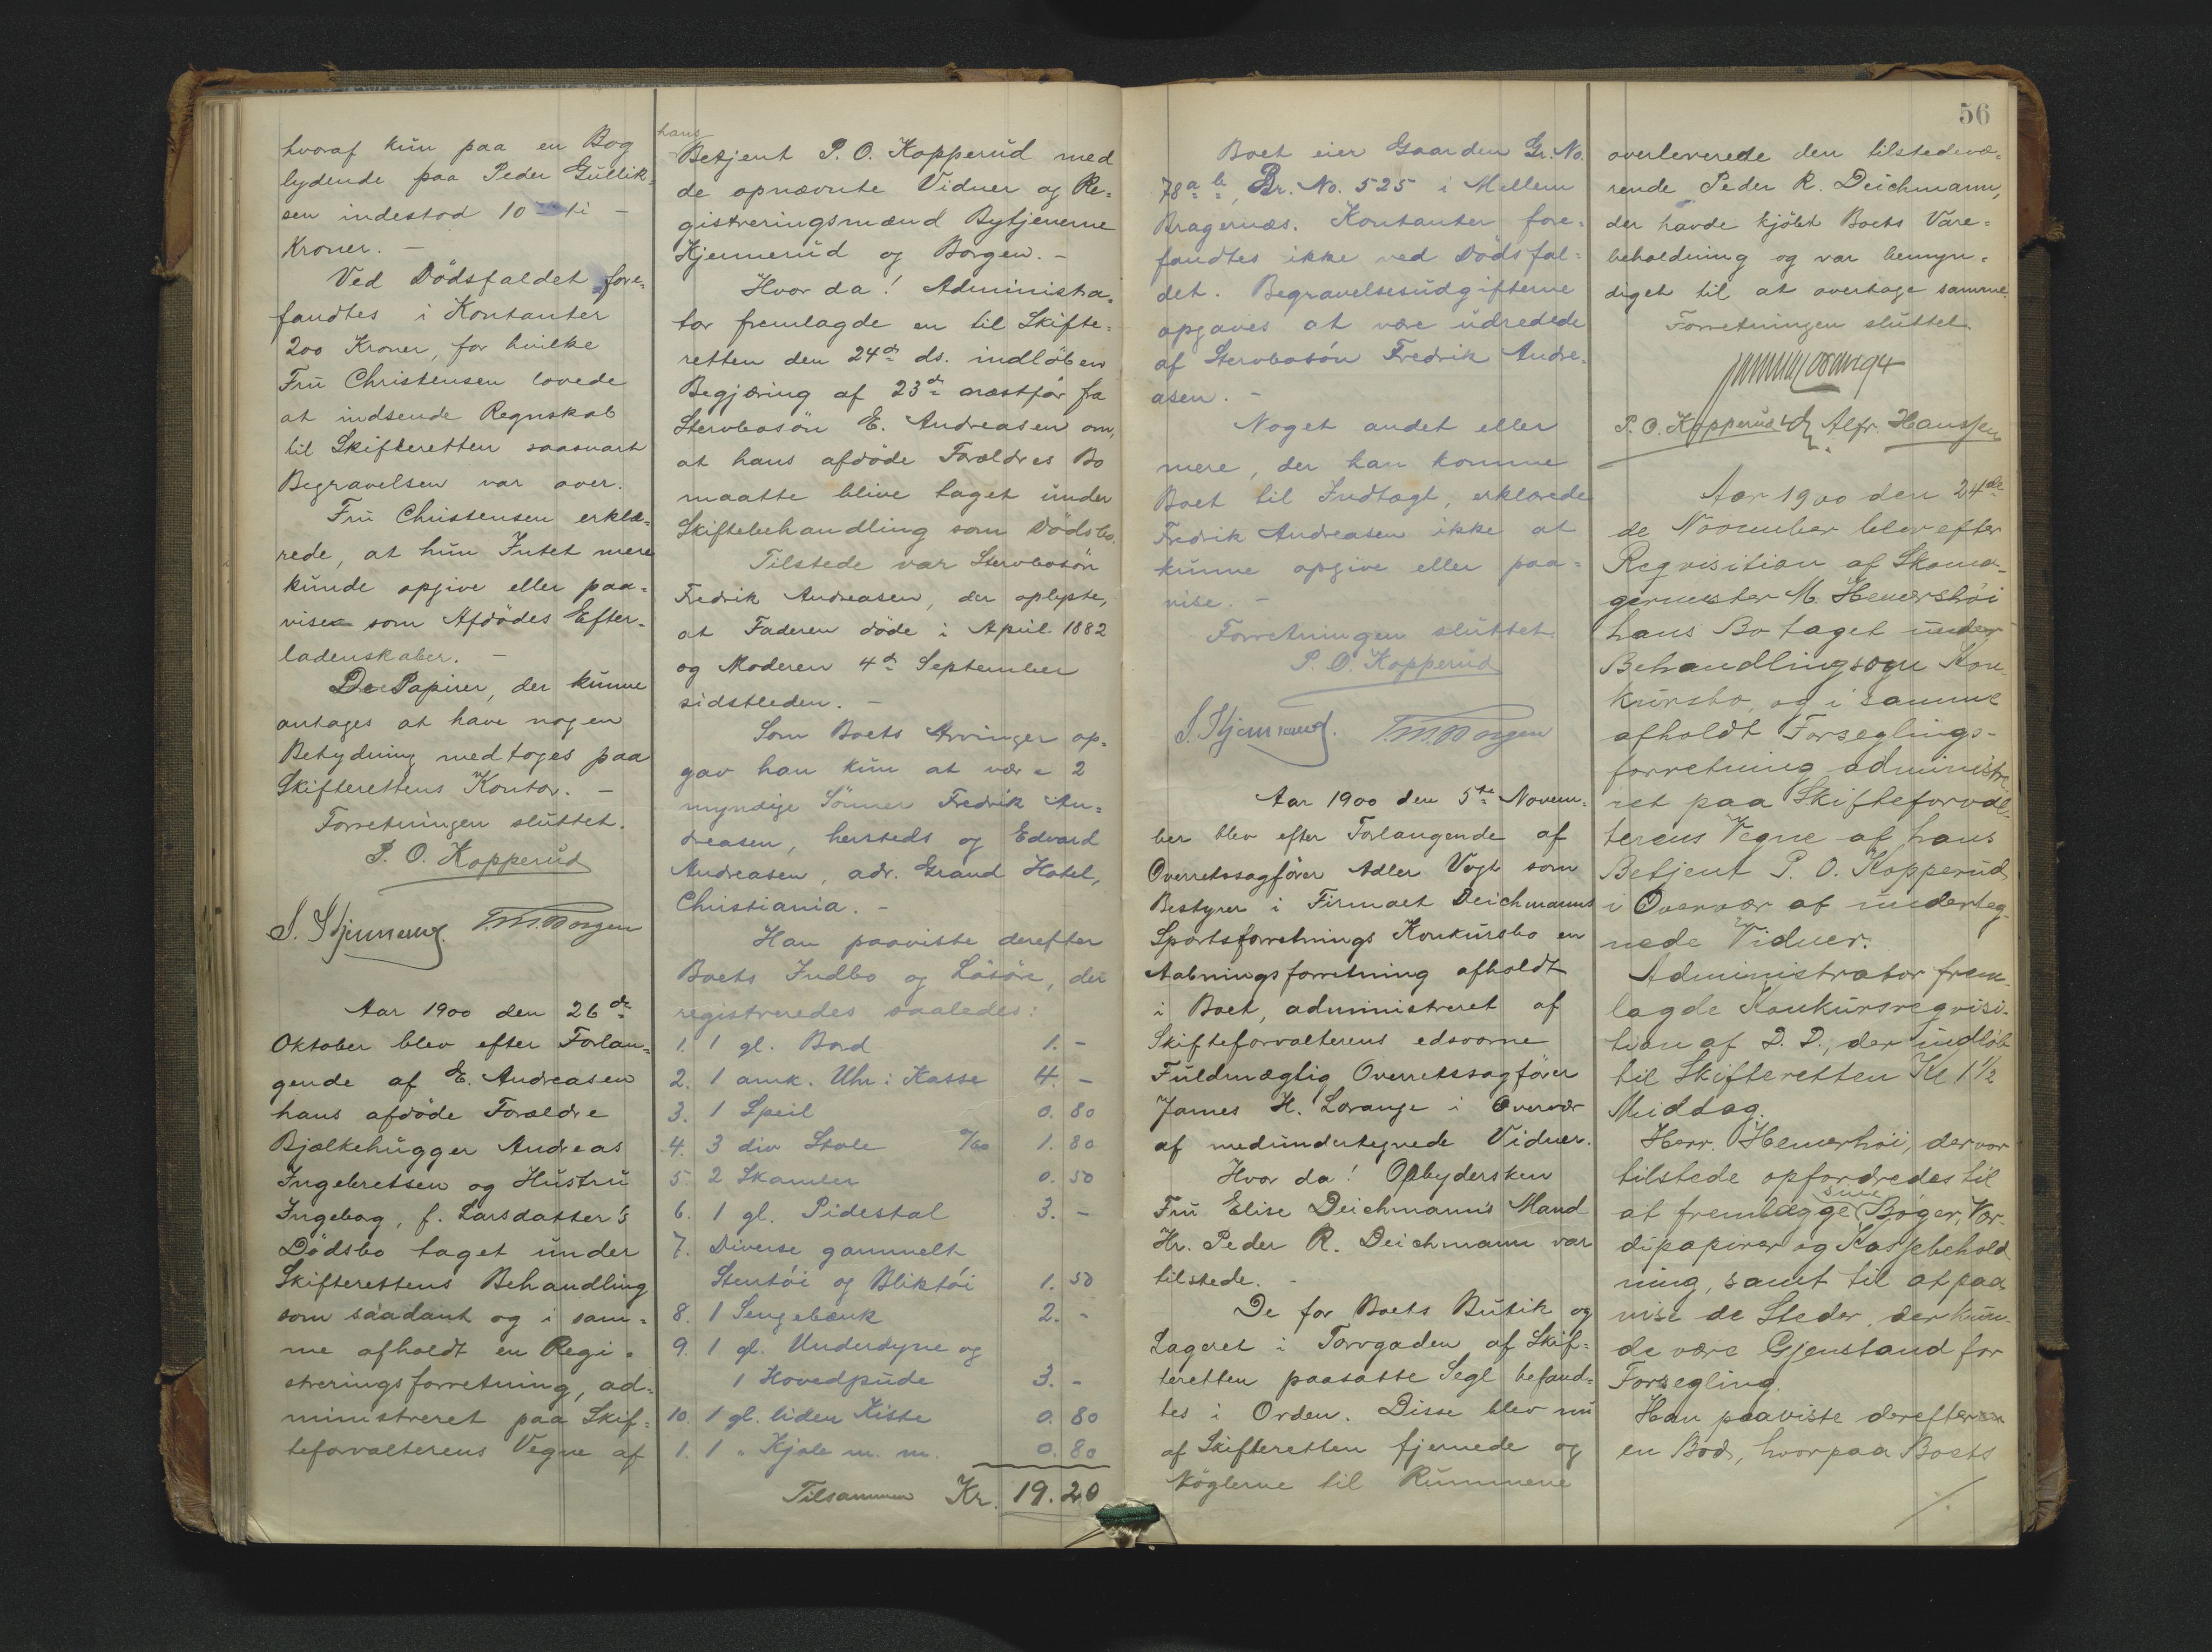 hvoraf kun paa en Bog
lydende paa Peder Gullik=
sen indestod 10 – ti –
Kroner. –
Ved Dödsfaldet fore=
fandtes i Kontanter
200 Kroner, for hvilke
Fru Christensen lovede
at indsende Regnskab
til Skifteretten saasnart
Begravelsen var over.
Fru Christensen erklæ=
rede, at hun Intet mere
kunde opgive eller paa=
vise som Afdödes Efter=
ladenskaber. –
De Papirer, der kunne
antages at have nogen
Betydning medtoges paa
Skifterettens Kontor. –
Forretningen sluttet.
P. O. Kopperud
S. Kjennerud. T. M. Borgen
Aar 1900 den 26de
Oktober blev efter Forlan=
gende af E. Andreasen
hans afdöde Forældre
Bjælkehugger Andreas
Ingebretsen og Hustru
Ingeborg, f. Larsdatter's
Dödsbo taget under
Skifterettens Behandling
som saadant og i sam=
me afholdt en Regi=
streringsforretning, ad=
ministreret paa Skif=
teforvalterens Vegne af
hans
Betjent P. O. Kopperud med
de opnævnte Vidner og Re=
gistreringsmænd Bytjenerne
Kjennerud og Borgen. –
Hvor da! Administra=
tor fremlagde en til Skifte=
retten den 24de ds. indlöben
Begjæring af 23de næstför fra
Stervbosön E. Andreasen om,
at hans afdöde Forældres Bo
maatte blive taget under
Skiftebehandling som Dödsbo.
Tilstede var Stervbosön
Fredrik Andreasen, der oplyste,
at Faderen döde i April 1882
og Moderen 4de September
sidstleden. –
Som Boets Arvinger op=
gav han kun at være 2
myndige Sönner Fredrik An=
dreasen, hersteds og Edvard
Andreasen, adr. Grand Hotel,
Christiania. –
Han paaviste derefter
Boets Indbo og Lösöre, der
registreredes saaledes:
1. 1 gl. Bord 1. –
2. 1 amk. Uhr i Kasse 4. –
3. 1 Speil 0. 80
4. 3 div Stole %60 1. 80
5. 2 Skamler 0. 50
6. 1 gl. Pidestal 3. –
7. Diverse gammelt
Stentöi og Bliktöi 1. 50
8. 1 Sengebænk 2. –
9. 1 gl. Underdyne og
1 Hovedpude 3. –
10. 1 gl. liden Kiste 0. 80
1. 1 " Kjole m. m. 0. 80
Tilsammen Kr. 19. 20
Boet eier Gaarden Gr. No.
78 a b, Br. No. 525 i Mellem
Bragernæs. Kontanter fore=
fandtes ikke ved Dödsfal=
det. Begravelsesudgifterne
opgaves at være udredede
af Stervbosön Fredrik Andre=
asen. –
Noget andet eller
mere, der kan komme
Boet til Indtægt, erklærede
Fredrik Andreasen ikke at
kunne opgive eller paa=
vise. –
Forretningen sluttet.
P. O. Kopperud
S. Kjennerud. T. M. Borgen
Aar 1900 den 5te Novem=
ber blev efter Forlangende af
Overretssagförer Adler Vogt som
Bestyrer i Firmaet Deichmanns
Sportsforretnings Konkursbo en
Aabningsforretning afholdt
i Boet, administreret af
Skifteforvalterens edsvorne
Fuldmægtig Overretssagförer
James H. Lorange i Overvær
af medundertegnede Vidner.
Hvor da! Opbydersken
Fru Elise Deichmann's Mand
Hr. Peder R. Deichmann var
tilstede. –
De for Boets Butik og
Lageret i Torvgaden af Skif=
teretten paasatte Segl befand=
tes i Orden. Disse blev nu
af Skifteretten fjernede og
Nöglerne til Rummene
56
overleverede den tilstedevæ=
rende Peder R. Deichmann,
der havde kjöbt Boets Vare=
beholdning og var bemyn=
diget til at overtage samme.
Forretningen sluttet.
P. O. Kopperud Alfr. Hanssen
Aar 1900 den 24de
de November blev efter
Reqvisition af Skoma=
germester M. Hemershöi
hans Bo taget under
Behandling som Kon
kursbo, og i samme
afholdt Forseglings-
forretning administre
ret paa Skifteforval-
terens Vegne af hans
Betjent P. O. Kopperud
i Overvær af underteg-
nede Vidner.
Administrator frem-
lagde Konkursreqvisi-
tion af D. D., der indlöb
til Skifteretten Kl 1 1/2
Middag.
Herr. Hemershöi, der var
tilstede opfordredes til
at fremlægge sine Böger, Vær-
dipapirer og Kassebehold
ning, samt til at paa
vise de Steder, der kun-
de være Gjenstand for
Forsegling.
Han paaviste derefter
en Bod, hvorpaa Boets